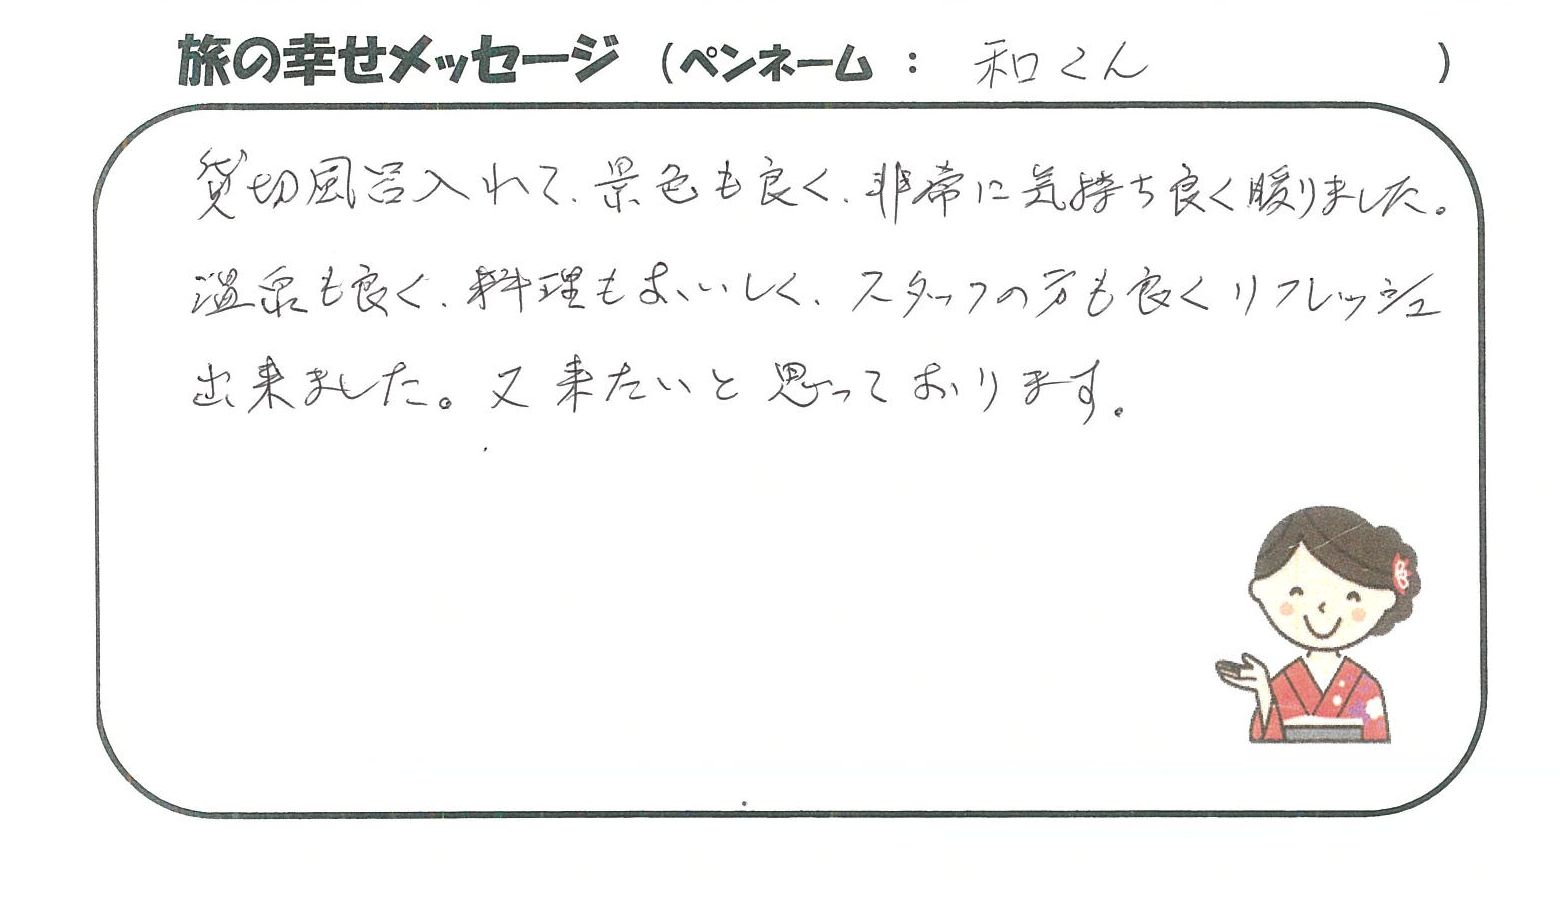 旅の幸せメッセージ (ペンネーム : 和くん )
貸切風呂入れて、景色も良く、非常に気持ち良く暖りました。
温泉も良く、料理もおいしく、スタッフの方も良くリフレッシュ
出来ました。又来たいと思っております。